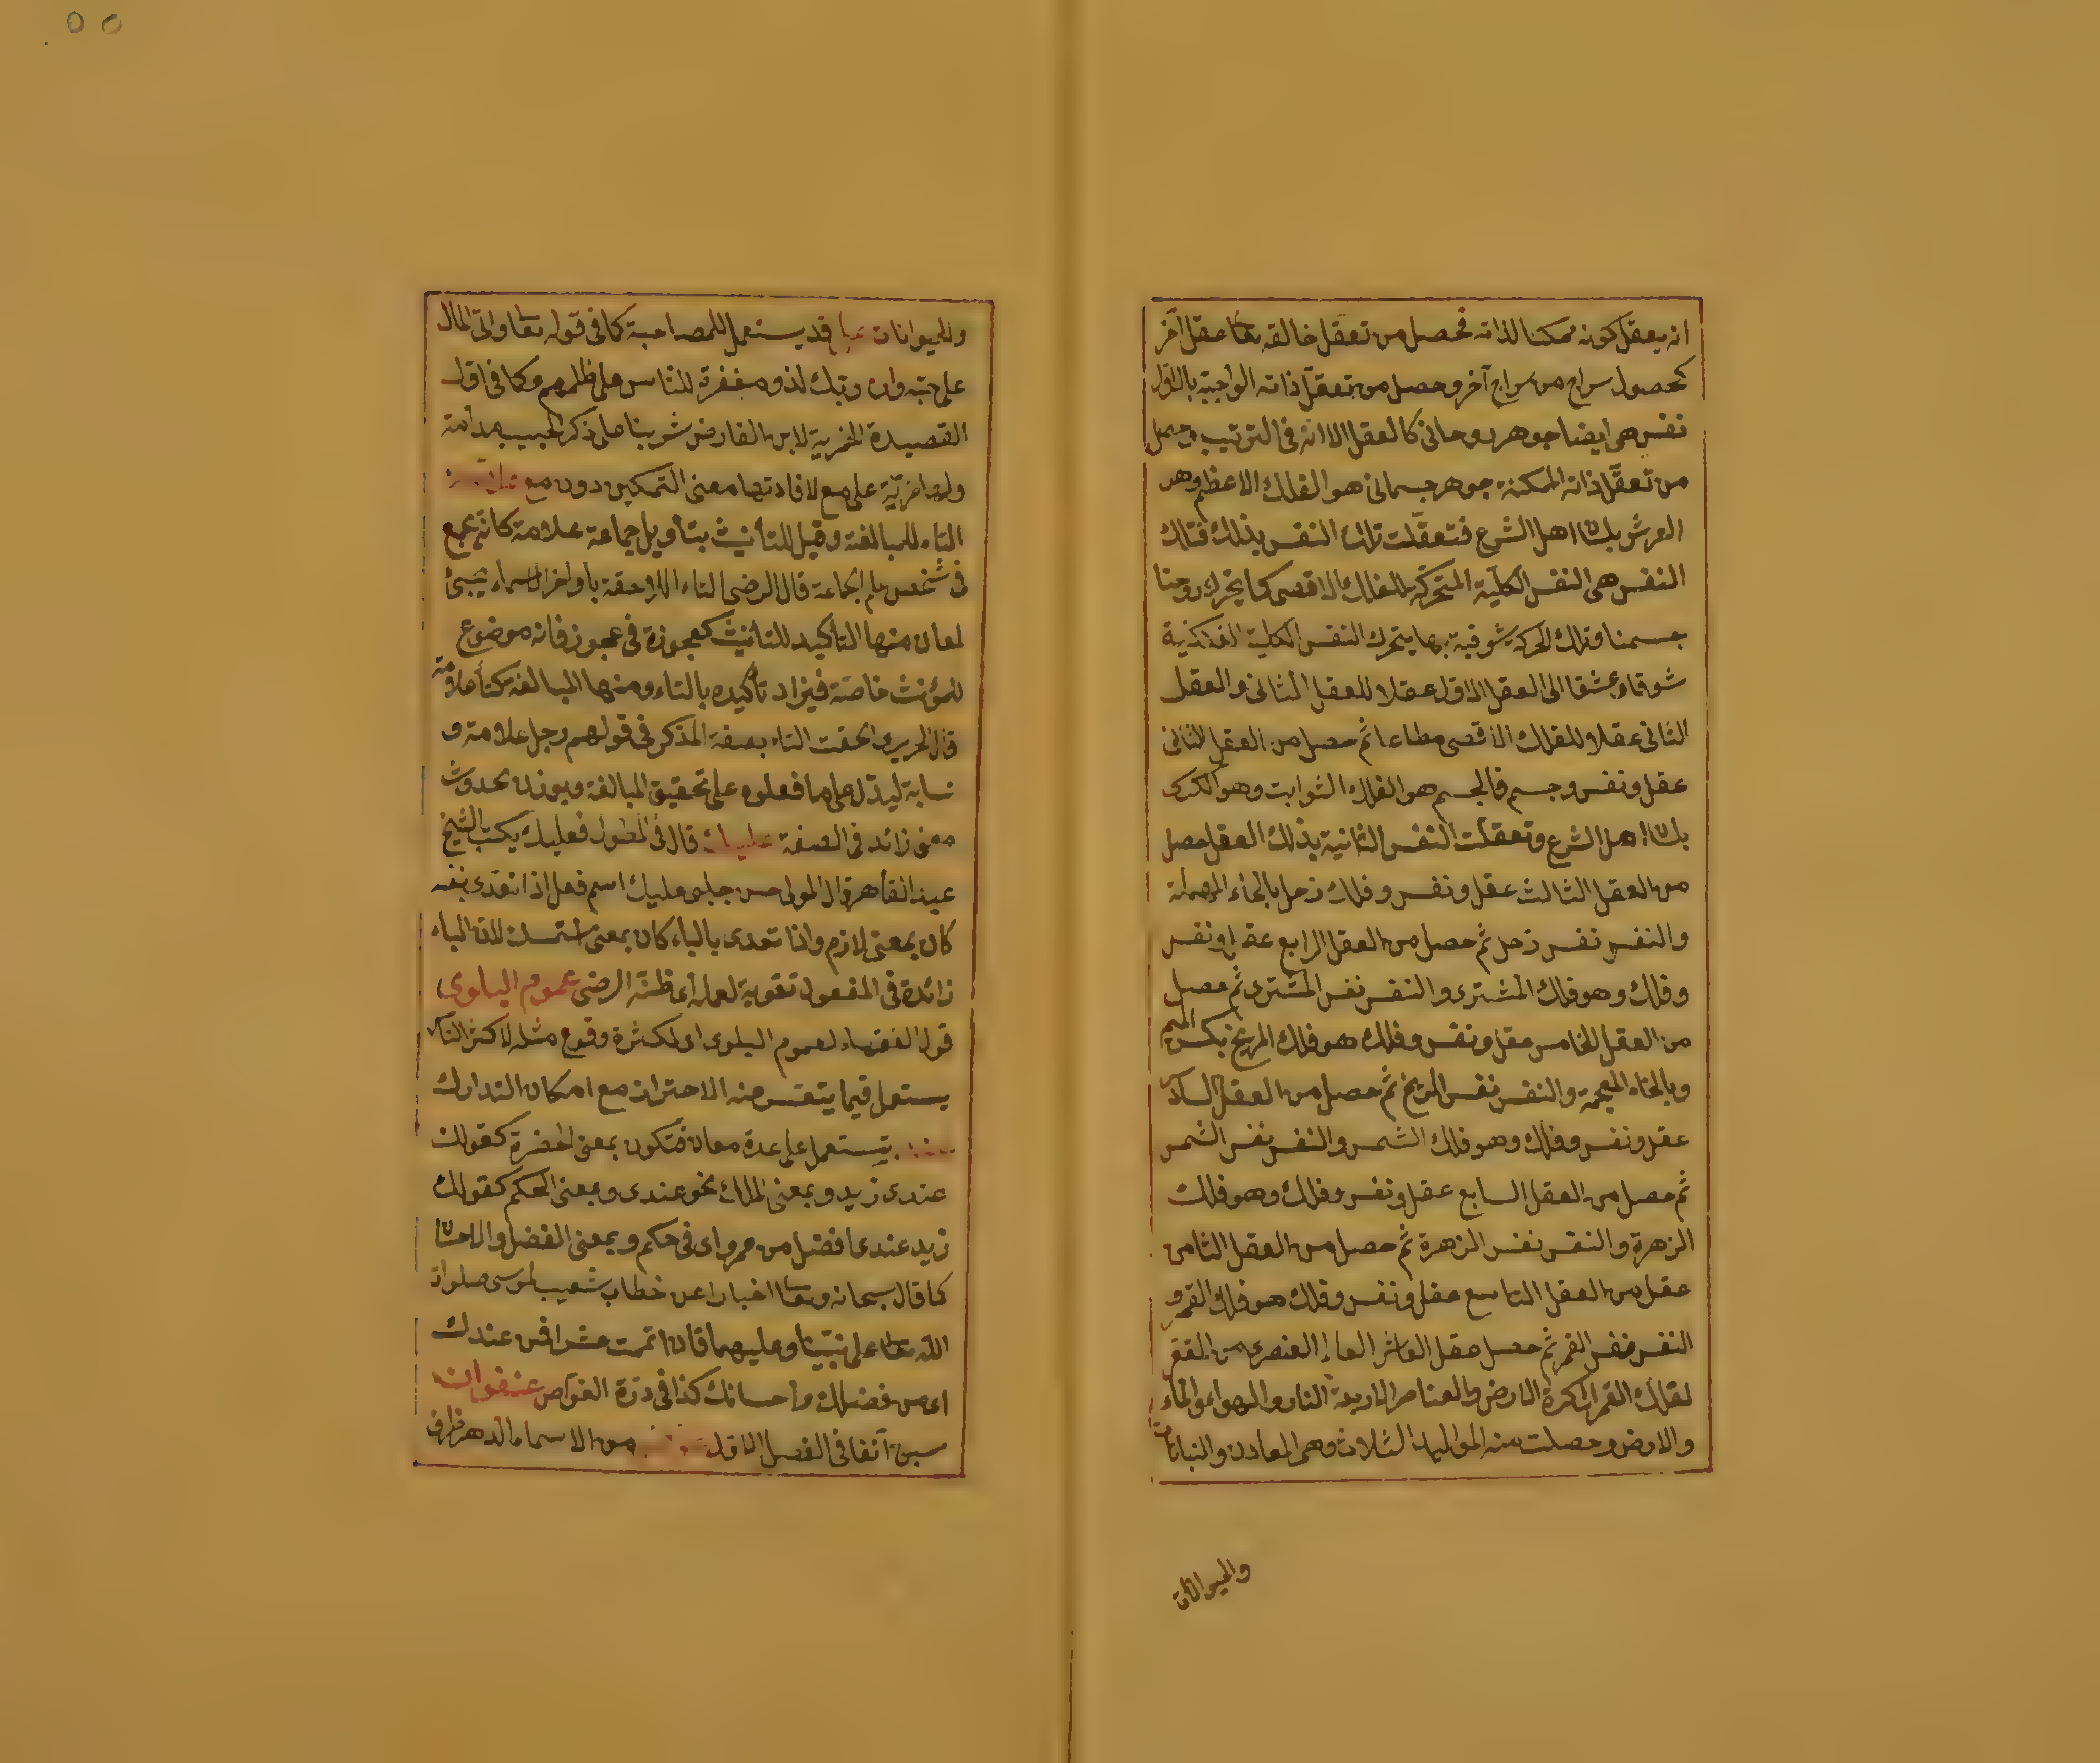 انه يعقل كونه ممكنا لذاته فحصل من تعقل خالقه تعا عقل آخر
كحصول سراج من سراج آخر وحصل من تعقل ذاته الواجبة بالاول
نفس هى ايضا جوهر روحانى كالعقل الا انه فى الترتيب وحصل
من تعقل ذاته الممكنة جوهر جسمانى هو الفلك الاعظم وهو
العرش بلسا اهل الشرع فتعقلت تلك النفس بذلك فتلك
النفس هى النفس الكلية المتحركة للفلك الاقصى كما يتحرك روحنا
جسمنا وتلك الحركة شوقية بها يتحرك النفس الكلية الفلكية
شوقا وعشقا الى العقل الاول عقلا للعقل الثانى والعقل
الثانى عقلا وللفلك الاقصى مطاعا ثم حصل من العقل الثانى
عقل ونفس وجسم فالجسم هو الفلك الثوابت وهو الكرسى
بلسا اهل الشرع وتعقلت النفس الثانية بذلك العقل حصل
من العقل الثالث عقل ونفس وفلك زحل بالحاء المهملة
والنفس نفس زحل ثم حصل من العقل الرابع عقل ونفس
وفلك وهو فلك المشترى والنفس نفس المشترى ثم حصل
من العقل الخامس عقل ونفس وفلك هو فلك المريخ بكسر الميم
وبالخاء المعجمة والنفس نفس المريخ ثم حصل من العقل الساد
عقل ونفس وفلك وهو فلك الشمس والنفس نفس الشمس
ثم حصل من العقل السابع عقل ونفس وفلك وهو فلك
الزهرة والنفس نفس الزهرة ثم حصل من العقل الثامن
عقل من العقل التاسع عقل ونفس وفلك هو فلك القمر و
النفس نفس القمر ثم حصل عقل العاشر العالم العنصرى من المقعر
لفلك القمر اكرة الارض والعناصر الاربعة النار والهواء والماء
والارض وحصلت منه المواليد الثلاث وهى المعادن والنباتات
والحيوانات
والحيوانات على قد يستعمل للمصاحبة كما فى قوله تعا وآتى المال
على حبه وان ربك لذو مغفرة للناس على ظلمهم وكما فى اول
القصيدة الخمرية لابن الفارض شربنا على ذكر الحبيب مدامة
ولها مزية على مع لافادتها معنى التمكين دون مع علامة
التاء للمبالغة وقيل للتأنيث بتأويل جماعة علامة كانه يجمع
فى شخص علم الجماعة قال الرضى التاء اللاحقة باواخر الاسماء يجيئ
لمعان منها التأكيد للتأنيث كعجوزة فى عجوز فانه موضوع
للمؤنث خاصة فيزاد تأكيده بالتاء ومنها المبالغة كتاء علامة
قال الحريرى الحقت التاء بصفة المذكر فى قولهم رجل علامة و
نسابة ليدل على ما فعلوه على تحقيق المبالغة ويوذن بحدوث
معنى زائد فى الصفة عليك قال فى المطول فعليك بكتب الشيخ
عبد القاهر قال المولى حسن چلبى عليك اسم فعل اذا تعدى بنفسه
كان بمعنى لازم واذا تعدى بالباء كان بمعنى استمسك الباء
زائدة فى المفعول تقوية لعمله الرضى عموم البلوى
قول الفقهاء لعموم البلوى اى لكثرة وقوع مثله لاكثر الناس
يستعمل فيما يتعسر منه الاحتراز مع امكان التدارك
عند يستعمل على عدة معان فتكون بمعنى الحضرة كقولك
عندى زيد وبمعنى الملك نحو عندى وبمعنى الحكم كقولك
زيد عندى افضل من عمرو اى فى حكم وبمعنى الفضل والاحسا
كما قال سبحانه وتعا اخبارا عن خطاب شعيب لموسى صلوات
الله تعا على نبينا وعليهما فان اتممت عشرا فمن عندك
اى من فضلك واحسانك كذا فى درة الغواص عنفوان
سبق آنفا فى الفصل الاول من الاسماء الدهر ظرف